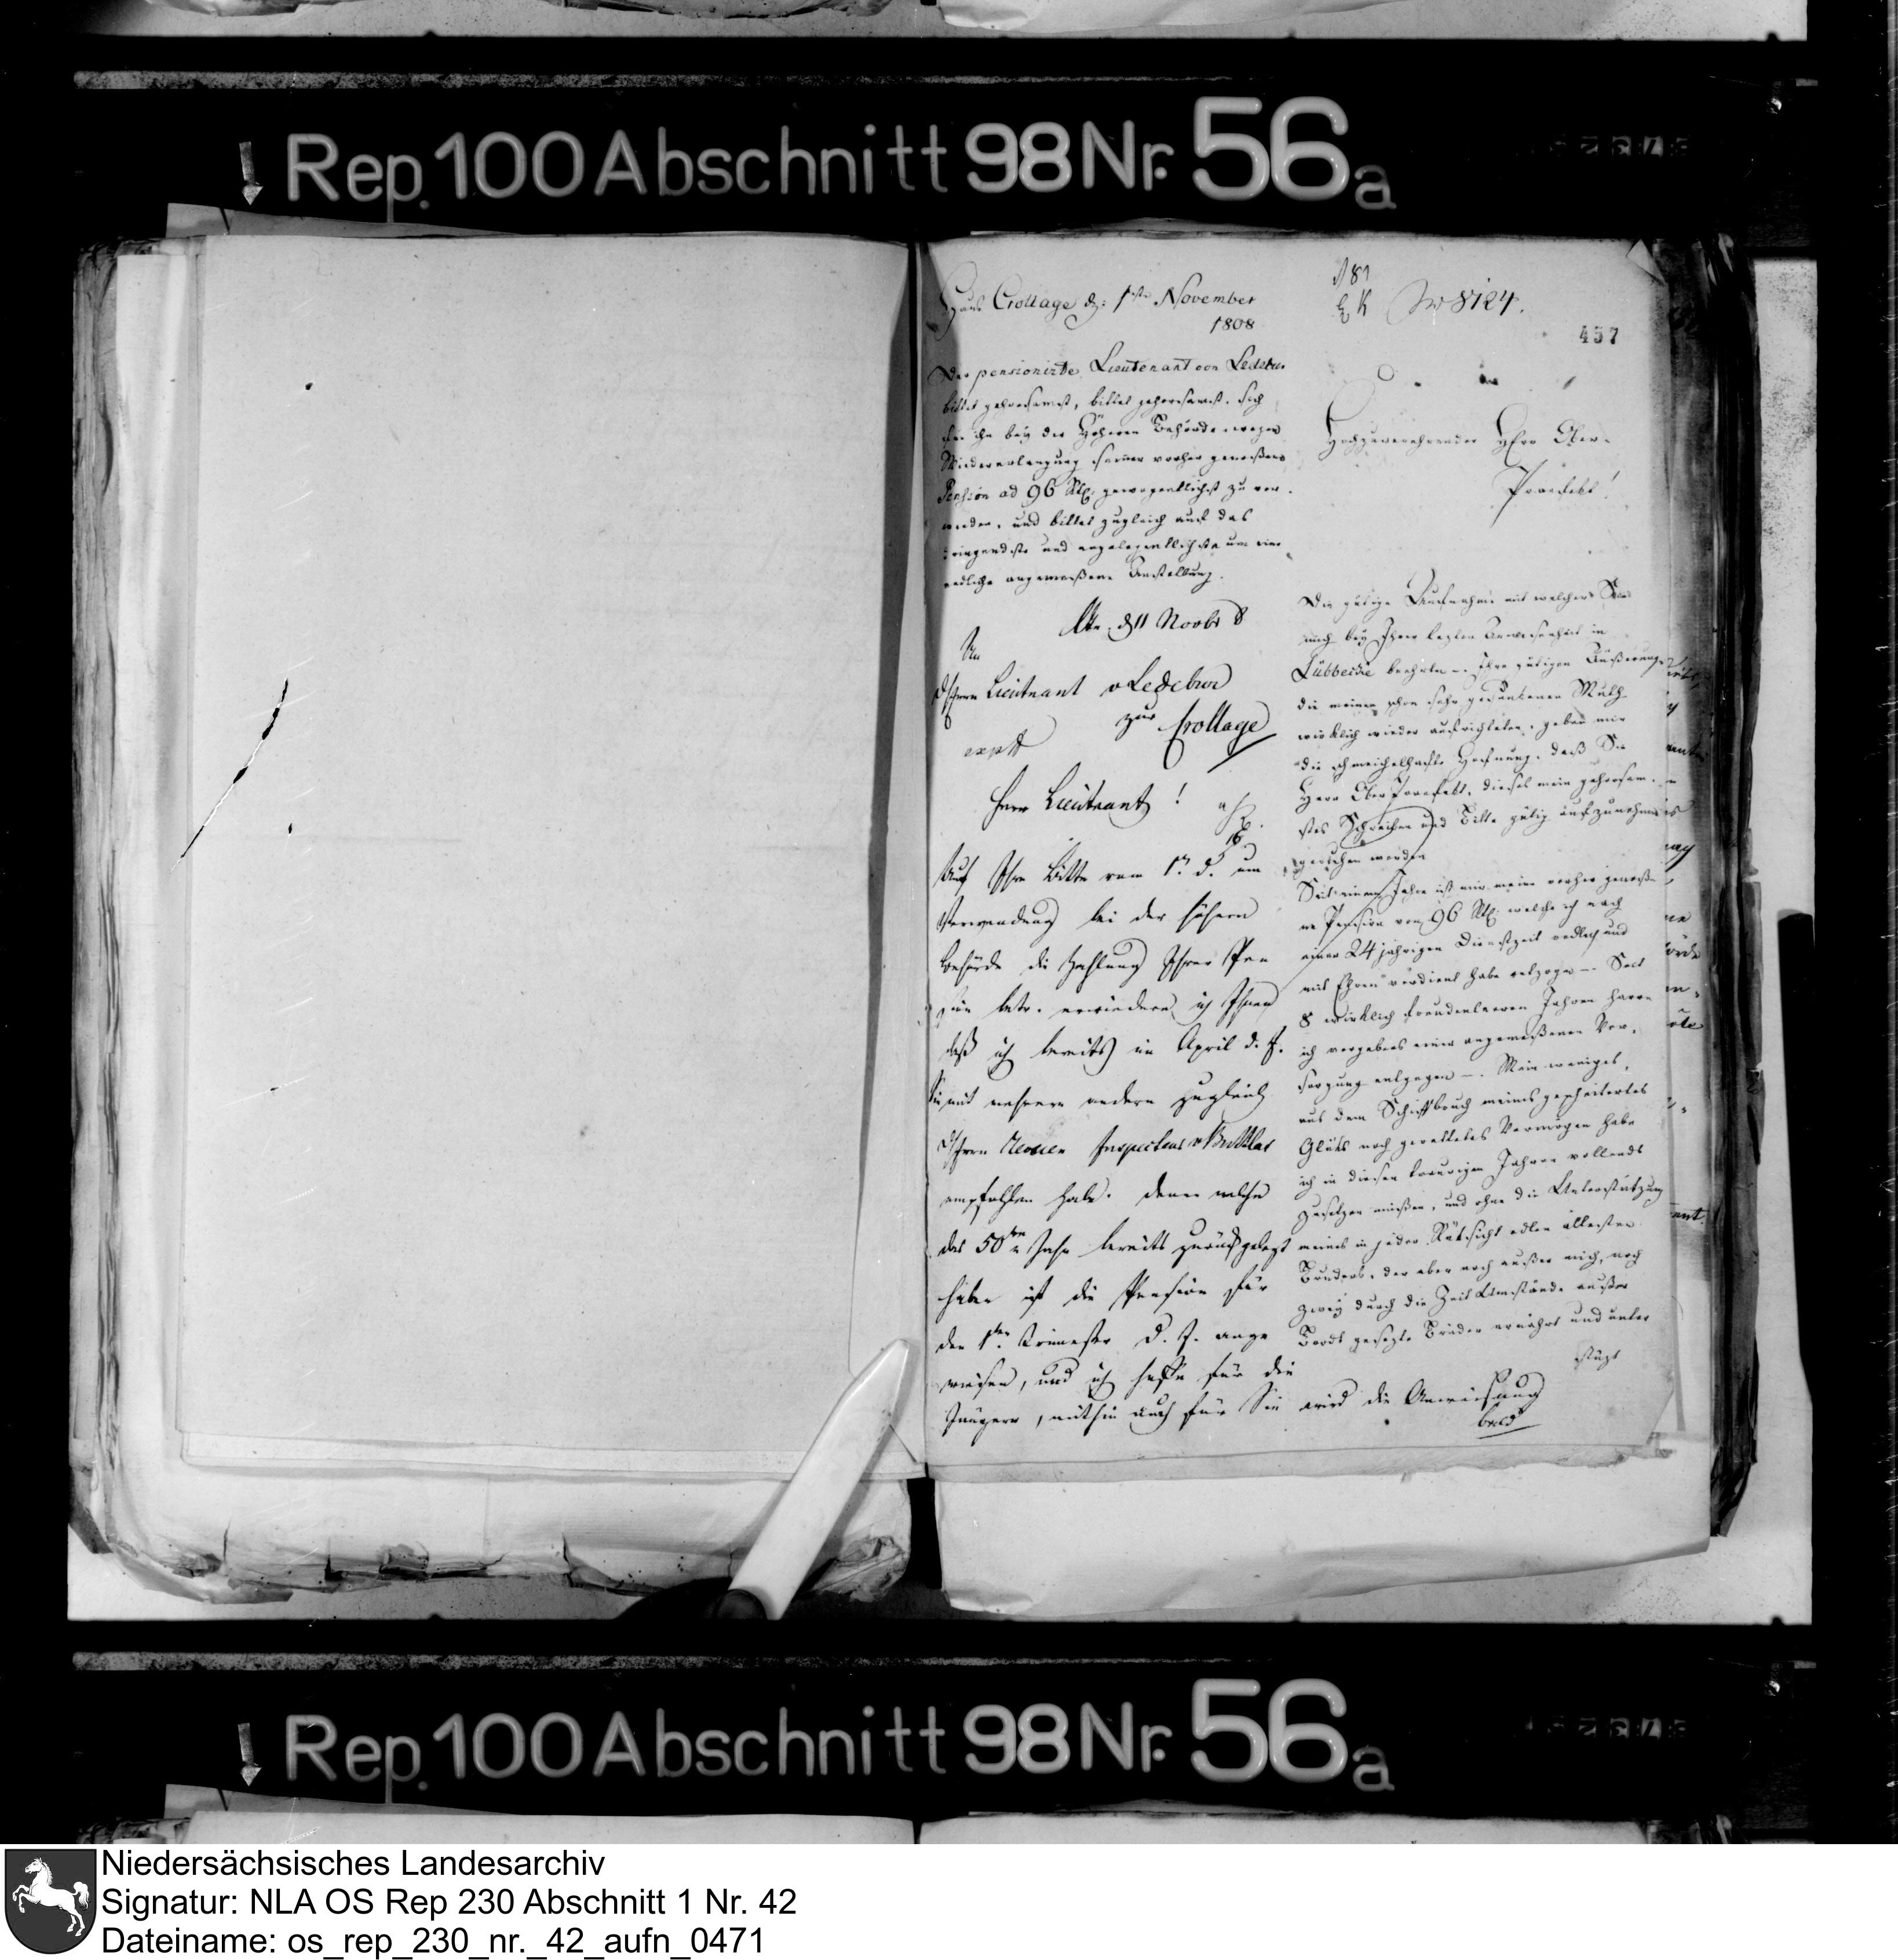 Rep. 100 Abschnitt 98 Nr. 56a
Haus Crollage d. 1ste November
1808
Der pensionirte Lieutenant von Ledebur
bittet gehorsamst, sich
für ihn bey der Höheren Behörde wegen
Wiedererlangung seiner vorher genoßenen
Pension ad 96 Rtl. gewogentlichst zu ver-
wenden, und bittet zugleich auf das
dringendste und angelegentlichste um eine
endliche angemeßene Anstellung.
d 11 Novbr 8
An
Herrn Lieutnant v Ledebur
zur Crollage
Herr Lieutnant!
Auf Ihre Bitte vom 1. d. um
Verwendung bei der höhern
Behörde die Zahlung Ihrer Pen
sion betr. erwiedere ich Ihnen
daß ich bereits im April d. J.
Sie mit mehrere andern zugleich
Herrn Revuen Inspecteur
empfohlen habe. Denen welche
das 50te Jahr bereits zurückgelegt
haben ist die Pension für
den 1ten Trimester d. J. ange
wiesen, und ich hoffe für die
Jüngern, mithin auch für Sie wird die Anweisung
bald
Nr 8124.
457
Hochzuverehrender Herr Ober-
Praefekt!
Die gütige Aufnahme mit welcher Sie
mich bey Ihrer lezten Anwesenheit in
Lübbecke beehrten – Ihre gütigen Äußerungen
die meinen schon sehr gesunkenen Muth
wirklich wieder aufrichteten, geben mir
die schmeichelhafte Hofnung, daß Sie
Herr Ober Praefekt, dieses mein gehorsam-
stes Schreiben und Bitte gütig aufzunehmen
geruhen werden
Seit einem Jahre ist mir meine vorher genoße-
ne Pension von 96 Rtl. welche ich nach
einer 24 jährigen Dienstzeit redlich und
mit Ehren verdient habe entzogen –. Seit
8 wirklich freudenleeren Jahren harre
ich vergebens einer angemeßenen Ver-
sorgung entgegen –. Mein weniges,
aus dem Schiffbruch meines gescheiterten
Glüks noch gerettetes Vermögen habe
ich in diesen traurigen Jahren vollends
zusetzen müßen, und ohne die Unterstützung
meines in jeder Rüksicht edlen ältesten
Bruders, der aber noch außer mich, noch
zwey durch die Zeit Umstände außer
Brodt gesezte Brüder ernährt und unter
stüzt
Rep. 100 Abschnitt 98 Nr. 56a
Niedersächsisches Landesarchiv
Signatur: NLA OS Rep 230 Abschnitt 1 Nr. 42
Dateiname: os_rep_230_nr._42_aufn_0471